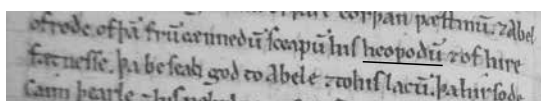 corþan wæstmum. ⁊ Abel
ofrode. of þā frūcennedū sceapū his heopodū ⁊ of hire
fætnesse. þa beseah god to Abele ⁊ to his lacū. þa hirsode
Cain þearle ⁊ his